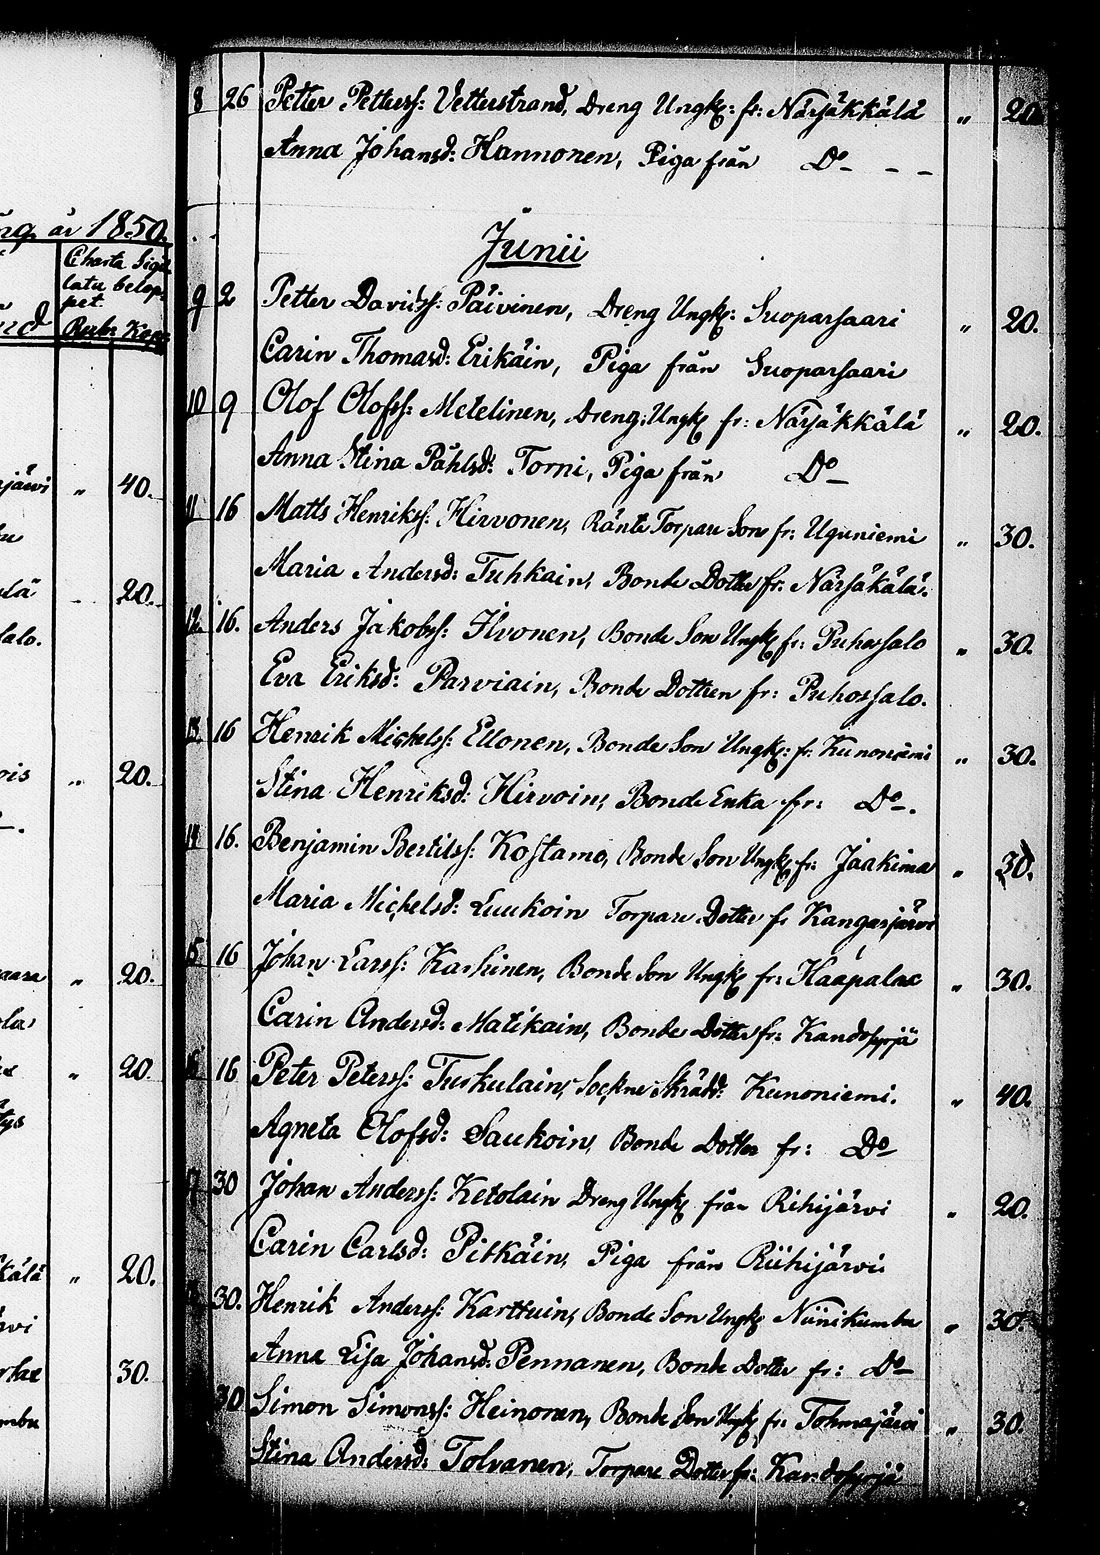 år 1850.
Charta Sigil
latæ belop-
pet.
Rub. Kop.
järvi " 40.
20.
salo.
" 20.
aara " 20.
" 20.
kälä " 20.
rvi
30.
8 26 Petter Petterss: Vetterstrand, Dreng Ungk: fr: Närsäkkälä " 20.
Anna Johansd: Hannonen, Piga från Do - - -
Junii
9 2 Petter Davidss: Päivinen, Dreng Ungk: Suoparsaari " 20.
Carin Thomasd: Erikäin, Piga från Suoparsaari
10 9 Olof Olofss: Metelinen, Dreng Ungk fr: Närsäkkälä " 20.
Anna Stina Påhlsd: Torni, Piga från Do
11 16 Matts Henrikss: Hirvonen, Ränte Torpare Son fr: Uguniemi " 30.
Maria Andersd: Tuhkain, Bonde Dotter fr: Närsäkälä.
12 16. Anders Jakobss: Ilvonen, Bonde Son Ungk fr: Puhossalo " 30.
Eva Eriksd: Parviain, Bonde Dottren fr: Puhossalo.
13 16 Henrik Michelss: Ellonen, Bonde Son Ungk: fr: Kunoniemi " 30.
Stina Henriksd: Hirvoin, Bonde Enka fr: Do.
14 16. Benjamin Bertilss: Kostamo, Bonde Son Ungk fr: Jaakima " 30.
Maria Michelsd: Luukoin Torpare Dotter fr Kangasjärvi
15 16 Johan Larss: Karhinen, Bonde Son Ungk fr: Haapalax " 30.
Carin Andersd: Matikain, Bonde Dotter fr: Kandosyrjä
16 16 Peter Peterss: Turkulain, Sockne Skrädd: Kunoniemi. " 40.
Agneta Olofsd: Saukoin, Bonde Dotter fr: Do
17 30 Johan Anderss: Ketolain Dreng Ungk från Rihijärvi " 20.
Carin Carlsd: Pitkäin, Piga från Riihijärvi
30. Henrik Anderss: Karttuin, Bonde Son Ungk Niinikumbu " 30.
Anna Lisa Johansd: Pennanen, Bonde Dotter fr: Do
30 Simon Simonss: Heinonen, Bonde Son Ungk fr: Tohmajärvi " 30.
Stina Andersd: Tolvanen, Torpare Dotter fr: Kandosyrjä